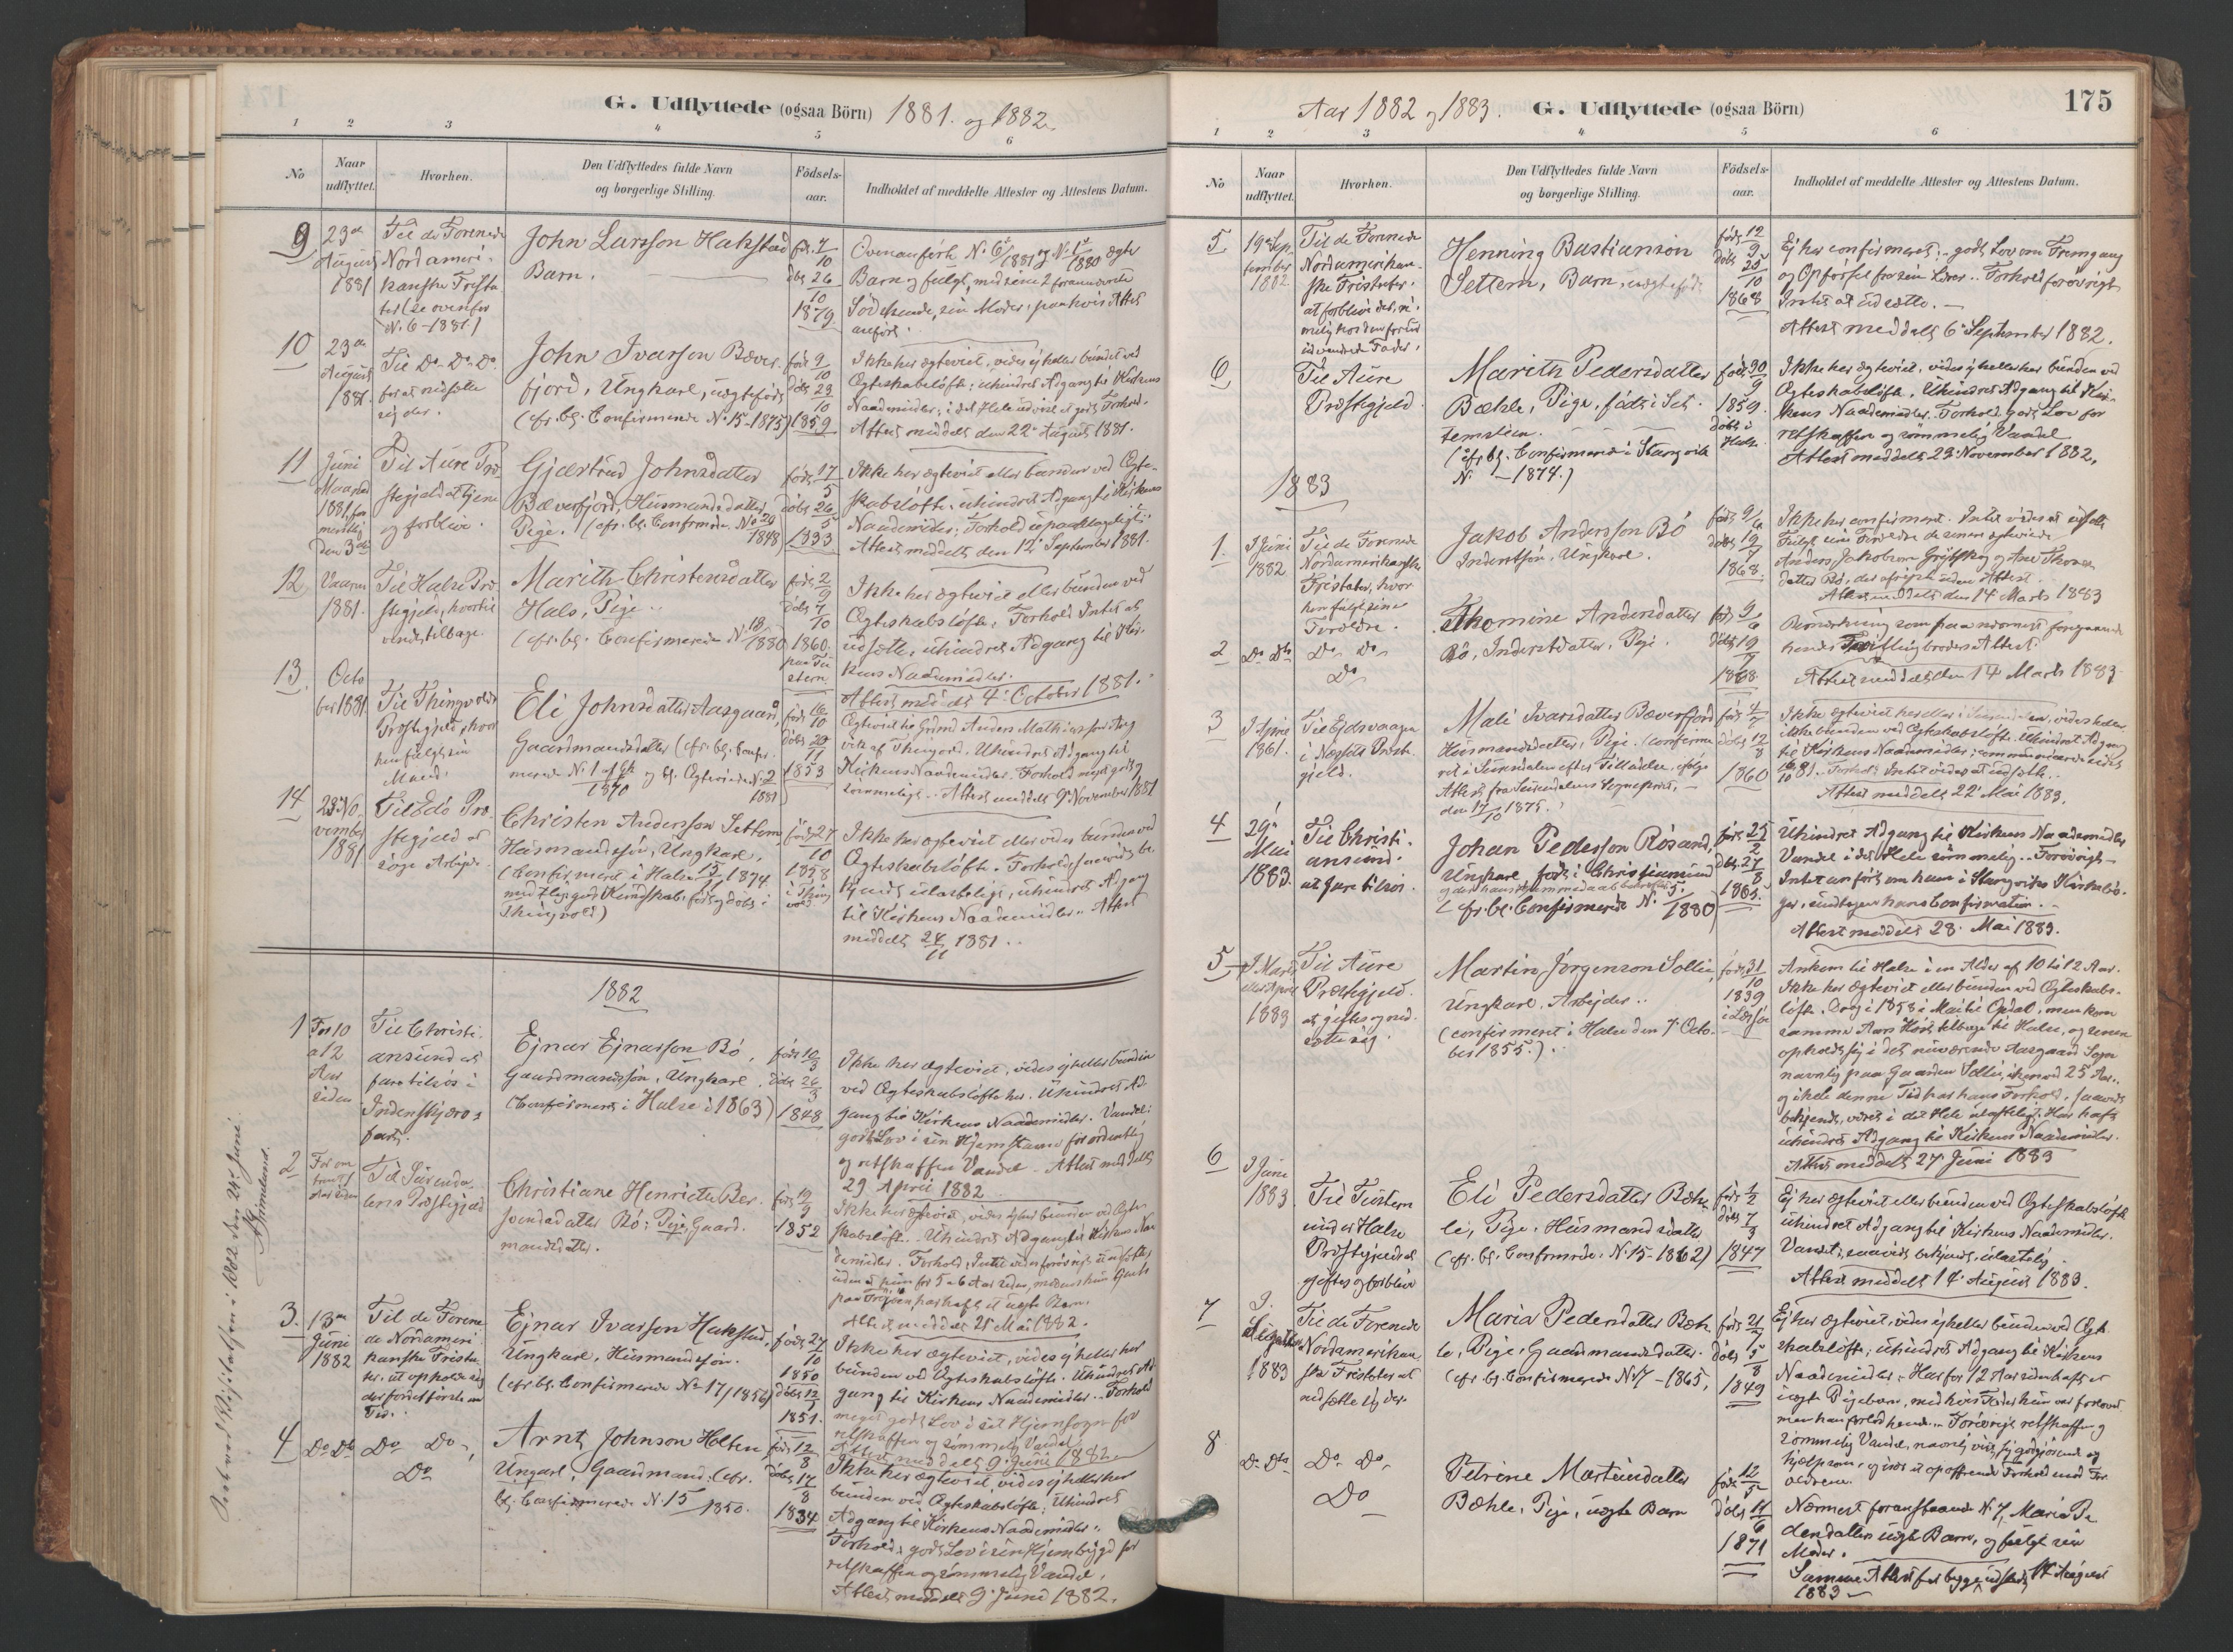 G. Udflyttede (ogsaa Börn) 1881. og 1882.
1 2 3 4 5 6
No
Naar udflyttet.
Hvorhen.
Den Udflyttedes fulde Navn og borgerlige Stilling.
Födsels-aar.
Indholdet af meddelte Attester og Attestens Datum.
9
23de
August
1881
Til de Forenede
Nordameri-
kanske Frista-
ter (se ovenfor
No. 6 - 1881.)
John Larsson Halsstad
Barn.
föd 7/10
döbt 26/10
1879
Barn og fulgt med sine 2
10
23de
August
1881.
Til Do Do Do
for at nedsætte
sig der.
John Ivarson Bæver-
fjord, Ungkarl, uægtefödt
(cfr. bl. Confirmerede No. 15 - 1875)
föd 9/10
döbt 23/10
1859
Ikke her ægteviet, vides ej heller bundet ved
Ægteskabslöfte; uhindret Adgang til Kirkens
Naademidler; i det Hele udvist et godt Forhold.
Attest meddelt den 22de August 1881.
11
Juni
Maaned
1881,
den 3die
Til Aure Præ-
stegjeld at tjene
og forblive.
Gjærtrud Johnsdatter
Bæverfjord, Husmandsdatter,
Pige. (cfr. bl. Confirmerede No. 20 1848)
föd 17/5
döbt 26/5
1833
Ikke her ægteviet eller bunden ved Ægte-
skabslöfte, uhindret Adgang til Kirkens
Naademidler; Forhold upaaklageligt.
Attest meddelt den 12te September 1881.
12
Vaaren
1881.
Til Halse Præ-
stegjeld, hvortil
vendt tilbage.
Marith Christensdatter
Hals, Pige.
(cfr. bl. Confirmerede No. 18/1880)
föd 2/9
döbt 7/10
1860
Ikke her ægteviet eller bunden ved
Ægteskabslöfte; Forhold Intet at
udsætte, uhindret Adgang til Kir-
kens Naademidler.
Attest meddelt 4de October 1881.
13.
Octo
ber 1881
Til Thingvolds
Præstegjeld, hvor
hen fulgt sin
Mand.
Eli Johnsdatter Aasgaard,
Gaardmandsdatter (cfr. bl. Confir-
merede No. 1 og bl. Ægteviede No. 2 1881)
föd 16/10
döbt 20/11
1853
af Thingvold. Uhindret Adgang til
Kirkens Naademidler. Forhold meget godt og
sömmeligt. Attest meddelt 9de November 1881
14
23de No-
vember
1881
Til Edö Præ-
stegjeld at
söge Arbejde.
Christen Andersson Settem,
Husmandssön, Ungkarl.
(Confirmeret i Halse 1874
med Kundskab. födt og döbt i
Thingvold)
föd 27/10
1858
i Thing
vold
Ikke her ægteviet eller vides bunden ved
Ægteskabslöfte. Forhold saavidt be-
kjendt ulasteligt, uhindret Adgang
til Kirkens Naademidler. Attest
meddelt 24/11 1881.
1882
1
For 10
a 12
Aar
siden
Til Christi-
ansund at
fare tilsös i
Indenskjærs
fart.
Ejnar Ejnarson Bö,
Gaardmandssön, Ungkarl.
(Confirmeret i Halse i 1863)
föd 10/3
döbt 26/3
1848
Ikke her ægteviet, vides ej heller bunden
ved Ægteskabslöfte her. Uhindret Ad-
gang til Kirkens Naademidler. Vandel:
godt Lov i sin Hjemstavn for ordentlig
og retskaffen Vandel. Attest meddelt
29 April 1882
2
For om
trent
Aar siden
Til Surenda-
lens Præstegjeld
Christiane Henricte
datter Bö, Pige, Gaard-
mandsdatter.
föd 19/9
1852
Ikke her ægteviet, vides ej heller bunden ved Ægte-
skabslöfte. Uhindret Adgang til Kirkens Naa-
demidler. Forhold: Intet vides forövrigt at udsætte
uden at hun for 5 a 6 Aar siden, medens hun tjente
paa har havt et uægte Barn.
Attest meddelt 25 Mai 1882.
3.
13de
Juni
1882
Til de Forene-
de Nordameri
kanske Frista-
ter, at opholde sig
der for det förste en
Tid.
Ejnar Ivarson Halsstad,
Ungkarl, Husmandssön.
(cfr. bl. Confirmerede No 17/1856)
föd 27/10
1850
döbt 12/1
1851.
Ikke her ægteviet, vides ej heller her
bunden ved Ægteskabslöfte. Uhindret Ad-
gang til Kirkens Naademidler. Forhold
meget godt Lov i sit Hjemsogn for
retskaffen og sömmelig Vandel
Attest meddelt 9. Juni 1882
4
Do Do
Do Do
Do
Arnt Johnson Holten
Ungkarl, Gaardmand. (cfr.
bl. Confirmerede No. 15 1850.
föd 12/8
döbt 17/8
1834
Ikke her ægteviet, vides ej heller her
bunden ved Ægteskabslöfte; Uhindret
Adgang til Kirkens Naademidler.
Forhold: godt Lov i sin Hjembygd for
retskaffen og sömmelig Vandel.
Attest meddelt 9. Juni 1882.
i 1882 den 24de Juni.
Aar 1882 og 1883. G. Udflyttede (ogsaa Börn) 175
1 2 3 4 5 6
No
Naar udflyttet.
Hvorhen.
Den Udflyttedes fulde Navn og borgerlige Stilling.
Födsels-aar.
Indholdet af meddelte Attester og Attestens Datum.
5
19de Sep-
tember
1882
Til de Forenede
Nordamerikan-
ske Fristater,
at forblive der,
hos den forud
udvandrede Fader.
Henning Bastianson
Settem, Barn, uægtefödt
föd 12/9
döbt 25/10
1868
Ej her confirmeret; godt Lov om Fremgang
og Opförsel fra sin Lærer. Forhold forövrigt
Intet at udsætte.
Attest meddelt 6te September 1882.
6
Til Aure
Præstegjeld.
Marith Pedersdatter
Bæhle, Pige, födt i Set-
temslien.
(cfr. bl. Confirmerede i Stangvik
No. - 1874.)
föd 30/9
1859.
döbt i
Halse
Ikke her ægteviet, vides ej heller her bunden ved
Ægteskabslöfte. Uhindret Adgang til Kir-
kens Naademidler. Forhold: godt Lov for
retskaffen og sömmelig Vandel
Attest meddelt 23. November 1882.
1883
1.
I Juni
1882
Til de Forenede
Nordamerikanske
Fristater, hvor
hen fulgt sine
Forældre.
Jakob Andersson Bö
Inderstsön, Ungkarl.
föd 9/6
döbt 19/7
1868.
Ikke her confirmeret. Intet vides at udsætte
Fulgt sine Forældre
Anders Jakobson og Ane Thomes-
datter Bö, der afrejste uden Attest.
Attest meddelt den 14 Marts 1883
2
Do Do
Do Do
Do
Thomine Andersdatter
Bö, Inderstdatter, Pige.
föd 9/6
döbt 19/7
1868
Bemærkning som paa nærmest foregaaende
hendes Tvillingbroders Attest.
Attest meddelt den 14 Marts 1883
3
I April
1861.
Til Ejdsvaagen
i Næssets Præste-
gjeld.
Mali Ivarsdatter Bæverfjord
Husmandsdatter, Pige. (confirme
ret i Surendalen efter Tilladelse, ifölge
Attest fra Surendalens Sognepræst,
den 17/10 1875.
föd 4/7
döbt 12/8
1860
Ikke ægteviet her eller i Surendalen, vides heller
ikke bunden ved Ægteskabslöfte. Uhindret Adgang
til Kirkens Naademidler; communicerede sidst
16/10 81. Forhold: Intet vides at udsætte.
Attest meddelt 22de Mai 1883.
4
29de
Mai
1883.
Til Christi-
ansund.
at fare tilsös.
Johan Pederson Rösand,
Ungkarl, födt i Christiansund
(cfr. bl. Confirmerede No. 5. 1880)
föd 25/2
döbt 27/8
1865.
Uhindret Adgang til Kirkens Naademidler
Vandel i det Hele sömmelig. Forövrigt
Intet anfört om ham i Stangviks Kirkebö-
ger, undtagen hans Confirmation.
Attest meddelt 28. Mai 1883.
5
I Marts
eller April
1883
Til Aure
Præstegjeld.
at giftes og ned-
sætte sig.
Martin Jörgenson Sollie,
Ungkarl, Arbejder.
(confirmeret i Halse den 7. Octo-
ber 1855.)
föd 31/10
1839
Ankom til Halse i en Alder af 10 til 12 Aar.
Ikke her ægteviet eller bunden ved Ægteskabs-
löfte. Drog i 1858 i Mai til Opdal, men kom
samme Aars Höst tilbage til Halse, og senere
opholdt sig i det nuværende Aasgaard Sogn
navnlig paa Gaarden Sollie, i henved 25 Aar.
og i hele denne Tid har hans Forhold, saavidt
bekjendt, været i det Hele ulasteligt. Har havt
uhindret Adgang til Kirkens Naademidler.
Attest meddelt 27 Juni 1883
6
I Juni
1883.
Til Tustern
under Halse
Præstegjeld at
giftes og forblive
Eli Pedersdatter Bæh-
le, Pige, Husmandsdatter
(cfr. bl. Confirmerede No. 15 - 1862)
föd 1/2
döbt 7/3
1847
Ej her ægteviet eller bunden ved Ægteskabslöfte
uhindret Adgang til Kirkens Naademidler.
Vandel: saavidt bekjendt, ulastelig.
Attest meddelt 14. August 1883.
7
I
1883
Til de Forenede
Nordamerikan
ske Fristater at
nedsætte sig der.
Maria Pedersdatter Bæh-
le, Pige, Gaardmandsdatter.
(cfr. bl. Confirmerede No. 7 - 1865,
föd 21/7
döbt 15/8
1849
Ej her ægteviet, vides ej heller bunden ved Ægte-
skabslöfte; uhindret Adgang til Kirkens
Naademidler. Har for 12 Aar siden havt et
uægte Pigebarn, med hvis Fader hun var forlovet
men han forlod hende. Forövrigt retskaffen og
sömmelig Vandel, navnlig vist sig godgjörende og
hjælpsom, og vist et opoffrende Forhold mod For-
ældrene.
8
Do Do
Do Do
Do
Petrine Martinsdatter
Bæhle, Pige, uægte Barn
föd 12/5
döbt 11/6
1871
Nærmest foranstaaende No. 7, Maria Pe-
dersdatters uægte Barn, og fulgt sin
Moder.
Samme Attest for begge, udstedt August
1883